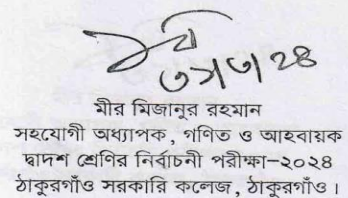 মীর মিজানুর রহমান
সহযোগী অধ্যাপক, গণিত ও আহবায়ক
দ্বাদশ শ্রেণির নির্বাচনী পরীক্ষা-২০২৪
ঠাকুরগাঁও সরকারি কলেজ, ঠাকুরগাঁও।